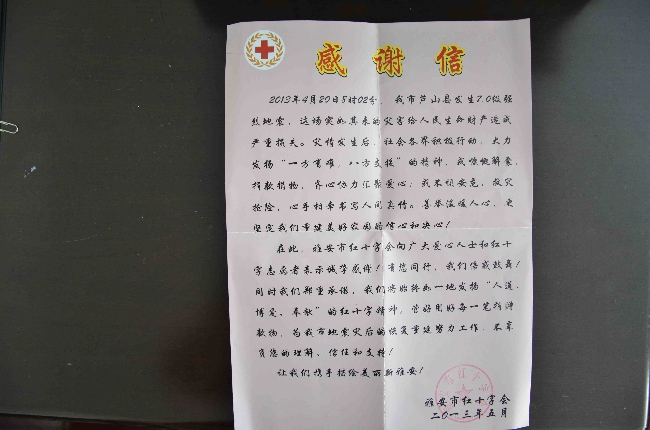 感谢信
2013年4月20日8时02分，我市芦山县发生7.0级强
烈地震，这场突如其来的灾害给人民生命财产造成
严重损失。灾情发生后，社会各界积极行动，大力
发扬“一方有难，八方支援”的精神，或慷慨解囊，
捐款捐物，齐心协力汇聚爱心；或不顾安危，救灾
抢险，心手相牵书写人间真情。善举温暖人心，更
坚定我们重建美好家园的信心和决心！
在此，雅安市红十字会向广大爱心人士和红十
字志愿者表示诚挚感谢！有您同行，我们倍感鼓舞！
同时我们郑重承诺，我们将始终如一地发扬“人道、
博爱、奉献”的红十字精神，管好用好每一笔捐赠
款物，为我市地震灾后的恢复重建努力工作，不辜
负您的理解、信任和支持！
让我们携手描绘美丽新雅安！
雅安市红十字会
二〇一三年五月